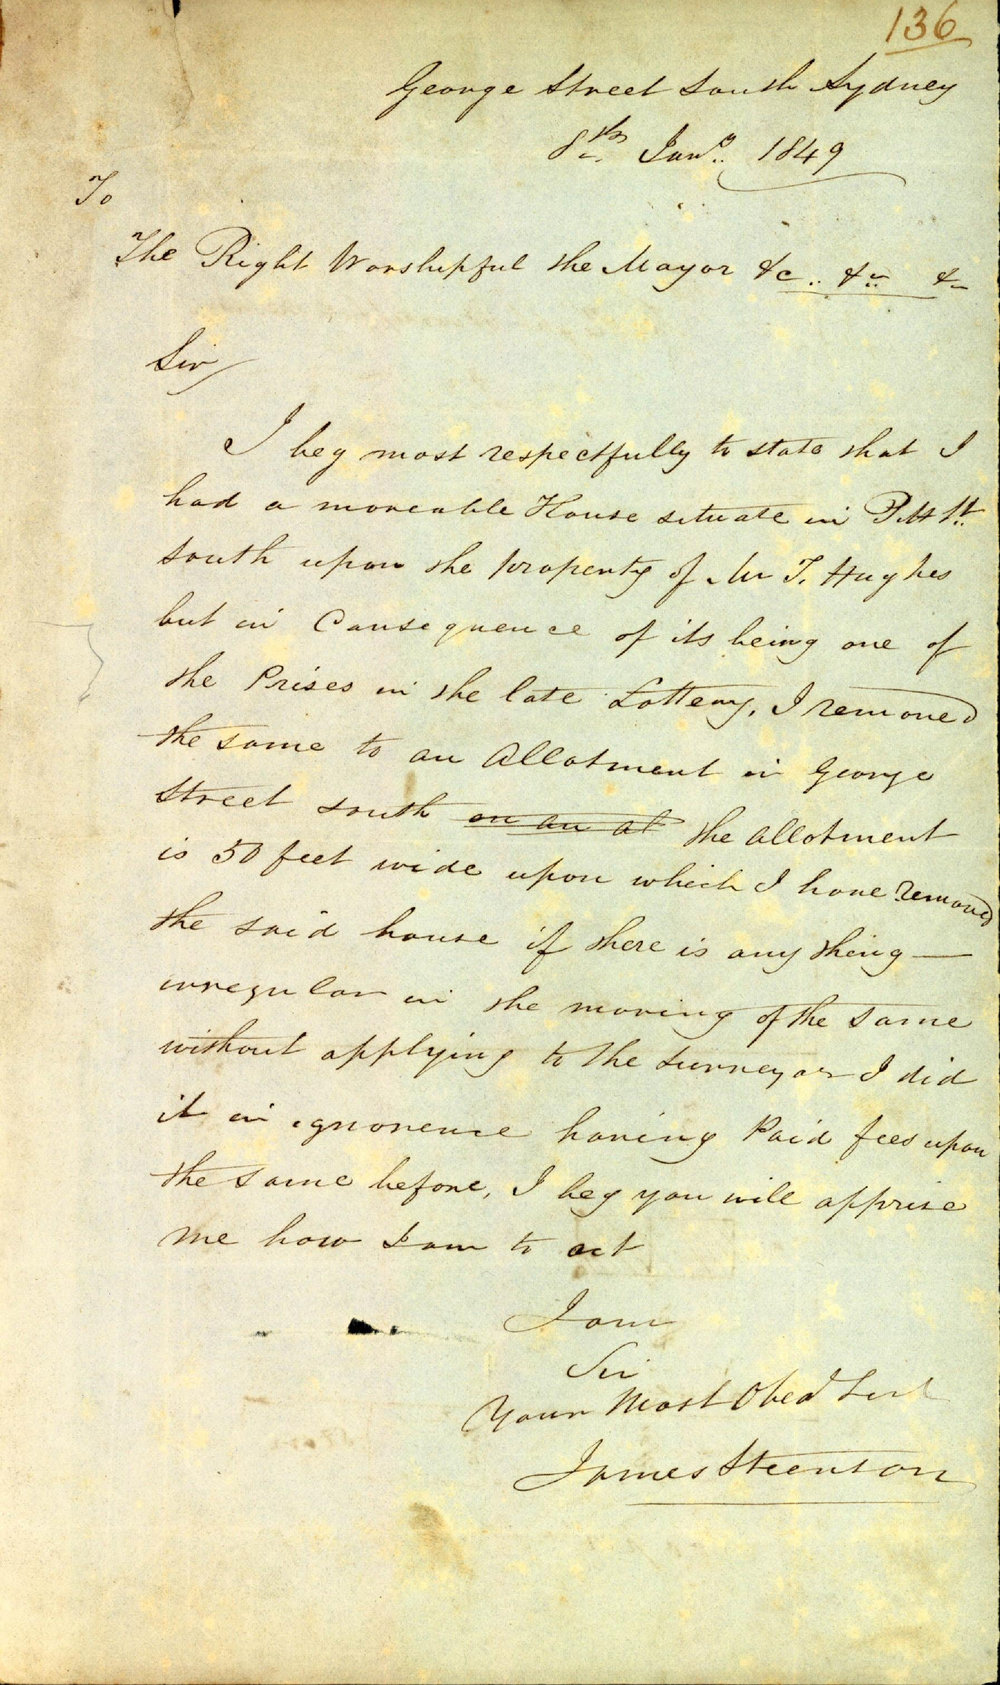 136
George Street South Sydney
8th Jany. 1849
To
The Right Worshipful the Mayor &c. &c. &c
Sir
I beg most respectfully to state that I
had a moveable House situate in Pitt St.
South upon the property of Mr T. Hughes
but in Consequence of its being one of
the Prises in the late Lottery, I removed
the same to an Allotment in George
Street South on an al the allotment
is 50 feet wide upon which I have removed
the said house if there is any thing —
irregular in the moving of the same
without applying to the Surveyor I did
it in ignorence having Paid fees upon
the same before, I beg you will apprise
me how I am to act
I am
Sir
Your Most Obed Servt
James Steenton